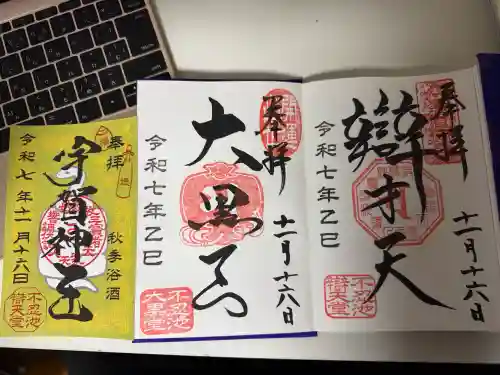 奉拝
宇賀神王
秋季浴酒
令和七年十一月十六日
不忍池
辯天堂
奉拝
大黒天
十一月十六日
令和七年乙巳
不忍池
大黒堂
奉拝
辯才天
十一月十六日
令和七年乙巳
不忍池
辯天堂